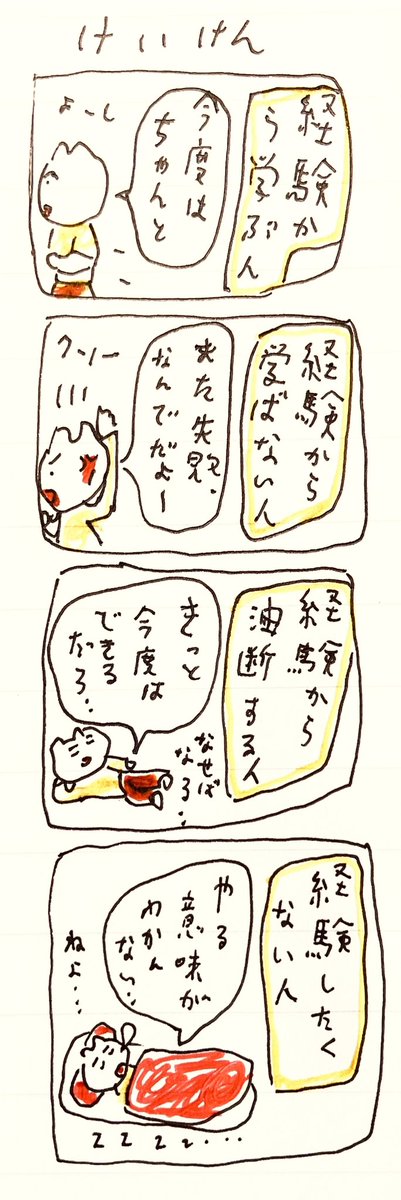 けいけん
経験か
ら学ぶ
人
今度は
ちゃんと
よーし
経験から
学ばないん
また失敗、
なんでだよー
クソー
経験から
油断する人
きっと
今度は
できる
だろ・・
なせば
なる・・
経験したく
ない人
やる
意味が
わかん
ない・・
ねよ・・・
zzzz・・・